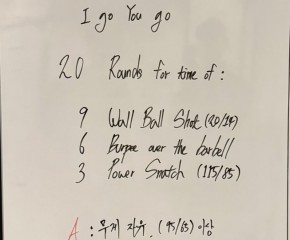 I go You go
20 Rounds for time of :
9 Wall Ball Shot (20/14)
6 Burpee over the barbell
3 Power Snatch (115/85)
A : 무게 자유. (95/65) 이상